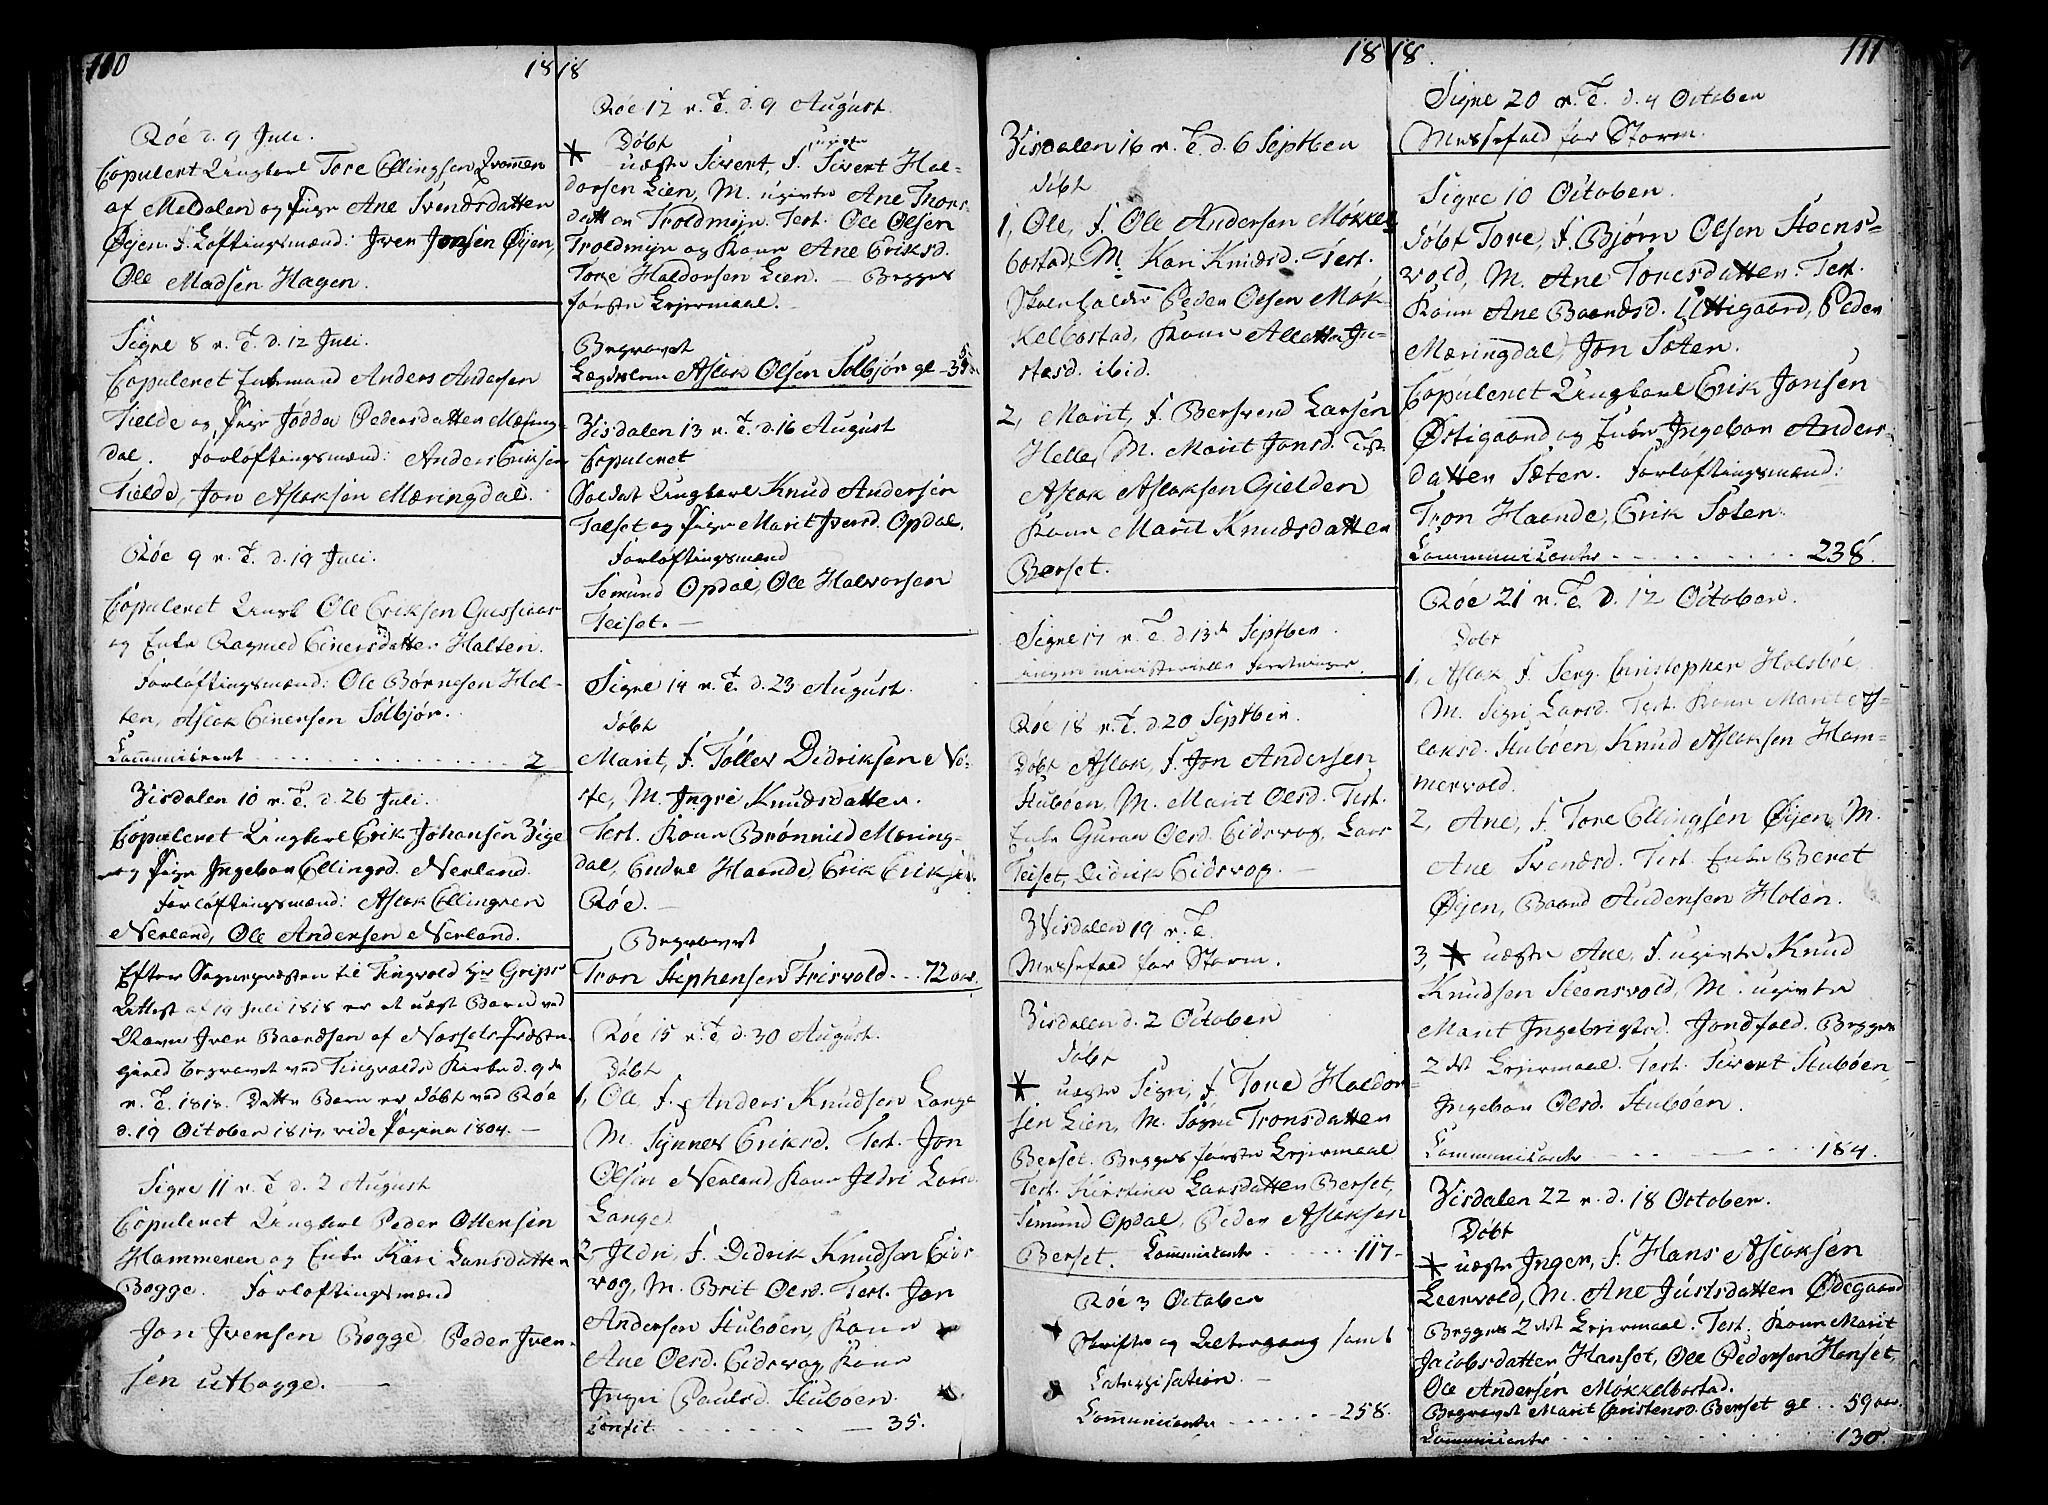 110
1818
Røe d. 9 Juli.
Copuleret Ungkarl Tore Ellingsen
af Meldalen og Pige Ane Svendsdatten
Øyen. F. Løftingsmænd: Iver Jonsen Øyen,
Ole Madsen Hagen.
Signe 8 n. T. d. 12 Juli.
Copuleret Enkemand Anders Andersen
Tielde og Pige Jødda Pedersdatten Mæring-
dal. Forløftingsmænd: Anders Eriksen
Tielde, Jon Aslaksen Mæringdal.
Røe 9 n. T. d. 19 Juli.
Copuleret Ungk Ole Eriksen Gussiaas
og Enke Ragnild Einersdatter Halten.
Forløftingsmænd: Ole Børnesen Hal-
ten, Aslak Einersen Solbjør.
Communicent . . . . . 2
Visdalen 10 n. T. d. 26 Juli.
Copuleret Ungkarl Erik Johansen Vige
og Pige Ingebor Ellingsd. Nerland.
Forløftingsmænd: Aslak Ellingsen
Nerland, Ole Andersen Nerland.
Efter Sognepresten til Tingvold Hr Grips
Attest af 19 Juli 1818 er et uægt Barn ved
Navn Iver Baardsen af Nossets Præste-
gield begravet ved Tingvolds Kirke d. 9de
n. T. 1818. Dette Barn er døbt ved Røe
d. 19 October 1817, vide Pagina 1804. —
Signe 11 n. T. d. 2 August
Copuleret Ungkarl Peder Ottersen
Hammeren og Enke Kari Larsdatten
Bogge. Forløftingsmænd
Jon Ivensen Bogge, Peder Iven-
sen utbogge. —
Røe 12 n. T. d. 9 August.
Døbt
* uægte Sivert, F. Sivert Hal-
dorsen Lien, M. ugivte Ane Thors-
datten Troldmyr. Test. Ole Olsen
Troldmyr og Kone Ane Eriksd.
Tore Haldorsen Lien. — Begges
første Lejermaal. —
Begravet
Lægdslem Aslak Olsen Solbjør gl
Visdalen 13 n. T. d. 16 August
Copuleret
Soldat Ungkarl Knud Andersen
Talset og Pige Marit Iversd. Opdal.
Forløftingsmænd
Semund Opdal, Ole Halvorsen
Teiset. —
Signe 14 n. T. d. 23 August.
Døbt
Marit, F. Tøller Didriksen No-
ste, M. Ingri Knudsdatten.
Test. Kone Brønnild Mæring-
dal, Endre Haande, Erik Eriksen
Røe. —
Begravet
Tron Stephensen Trisvold . . . 72 aar.
Røe 15 n. T. d. 30 August.
Døbt
1, Ole, F. Anders Knudsen Lange
M. Synnev Eriksd. Test. Jon
Olsen Nerland Kone Ildri Lars.
Lange.
2, Ildri, F. Didrik Knudsen Eids-
vog, M. Brit Olesd. Test. Jon
Andersen Stubøen, Kone
Ane Olesd. Eidsvog, Kone
Ingri Paulsd. Stubøen.
Confit. . . . . . . — 35.
111
1818.
Visdalen 16 n. T. d. 6 Septben
Døbt
1, Ole, F. Ole Andersen Møkkel-
bostad, M. Kari Knudsd. Test.
Skoeholder Peder Olsen Møk-
kelbostad, Kone Allette Ju-
stesd. ibid.
2, Marit, F. Bersvend Larsen
Helle, M. Marit Jonsd. Test.
Aslak Aslaksen Gielden
Kone Marit Knudsdatten
Berset.
Signe 17 n. T. d. 13de Septben.
ingen ministerielle forretninger.
Røe 18 n. T. d. 20 Septben.
Døbt Aslak, F. Jon Andersen
Stubøen, M. Marit Olesd. Test.
Enke Guran Olesd. Eidsvog, Lars
Teiset, Didrik Eidsvog. —
Visdalen 19 n. T.
Messefald for Storm.
Visdalen d. 2 October
Døbt
* uægte Signi, F. Tore Haldor-
sen Lien, M. Søgne Tronsdatten
Berset. Begges første Lejermaal
Test. Kirstina Larsdatten Berset,
Semund Opdal, Peder Aslaksen
Berset. Communicante . . . . 117-
Røe 3 October
Skrifte og Altergang samt
Catechisation. —
Communicante . . . . . 258.
Signe 20 n. T. d. 4 October
Messefald for Storm.
Signe 10 October.
Døbt Tore, F. Bjørn Olsen Steens-
vold, M. Ane Toresdatten. Test.
Kone Ane Baardsd. Uttigaard, Peder
Mæringdal, Jon Sæten.
Copuleret Ungkarl Erik Jonsen
Østigaard og Enke Ingebor Anders-
datten Sæten. Forløftingsmænd:
Tron Haande, Erik Sæten.
Communicante . . . . . 238.
Røe 21 n. T. d. 12 October.
Døbt
1, Aslak F. Serg. Christopher Holsbøe,
M. Signi Larsd. Test. Kone Marit As-
laksd. Stubøen, Knud Aslaksen Ham-
mervold.
2, Ane, F. Tore Ellingsen Øyen, M.
Ane Svendsd. Test. Enke Beret
Øyen, Baard Andersen Holen.
3, * uægte Ane, F. ugivte Knud
Knudsen Steensvold, M. ugivte
Marit Ingebrigtsd. Jordfald. Begges
2det Lejermaal. Test. Sivert Stubøen,
Ingebor Olesd. Stubøen.
Communicante . . . . . 184.
Visdalen 22 n. d. 18 October.
Døbt
* uægte Inger, F. Hans Aslaksen
Leervold, M. Ane Justsdatten Ødegaard
Begges 2det Lejermaal. Test. Kone Marit
Jacobsdatter Hanset, Ole Pedersen Hanset,
Ole Andersen Møkkelbostad.
Begravet Marit Christensd. Berset gl . . 59 aar.
Communicante . . . . . 130.